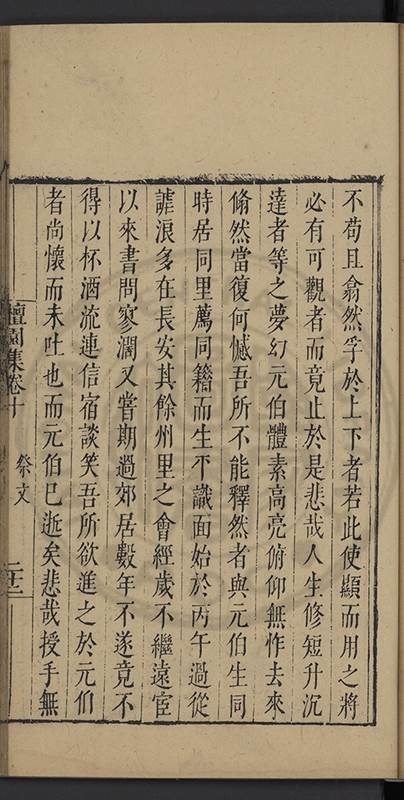 不苟且翕然孚於上下者若此使顯而用之將
必有可觀者而竟止於是悲哉人生修短升沉
達者等之夢幻元伯體素高亮俯仰無怍去來
翛然當復何憾吾所不能釋然者與元伯生同
時居同里薦同籍而生平識面始於丙午過從
謔浪多在長安其餘州里之會經歲不繼遠宦
以來書問寥濶又嘗期過郊居數年不遂竟不
得以杯酒流連信宿談笑吾所欲進之於元伯
者尚懷而未吐也而元伯已逝矣悲哉授手無
檀園集卷十 祭文 二十二